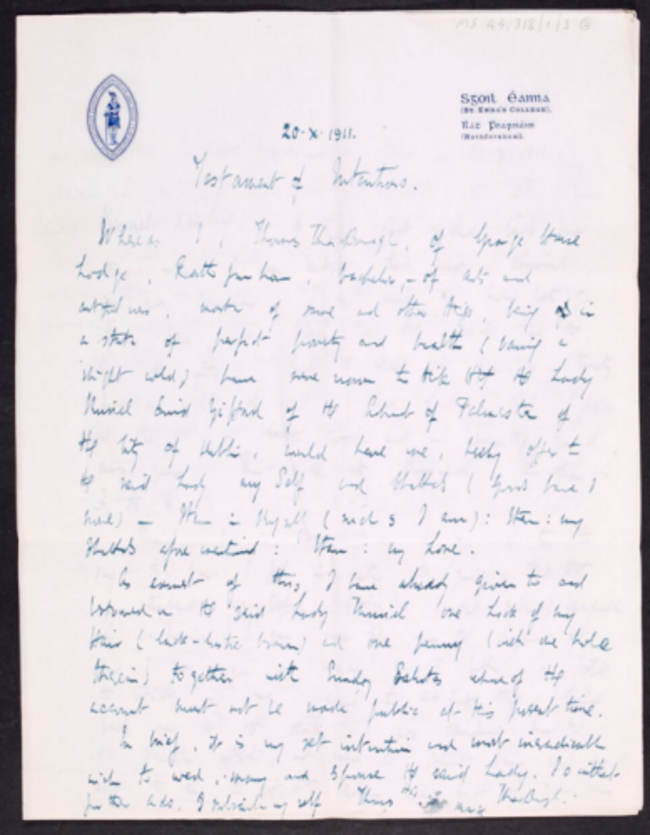 MS 44,318/1/3
Sgoil Éanna
(St. Enda's College),
Rát Fearnáin
(Rathfarnham).
20·X·1911.
Testament of Intentions.
Whereas I, Thomas MacDonagh, of Grange House
Lodge, Rathfarnham, bachelor, – of arts and
, master of and other , being in
a state of perfect poverty and health (saving a
slight cold) have to the Lady
Muriel Enid Gifford of the of of
the City of Dublin, would have me, offer to
the said Lady my Self and Chattels ( have I
none) – Item : Myself (such as I am) : Item : my
Chattels aforementioned : Item : my Love.
As earnest of this, I have already given to and
bestowed on the said Lady Muriel one Lock of my
Hair (lack-lustre brown) and one penny (with one hole
therein) together with Sunday whereof the
account must not be made public at this present time.
In brief, it is my set intention and most ineradicable
wish to wed, marry and spouse the said Lady. So without
further ado, I subscribe myself Thomas MacDonagh.